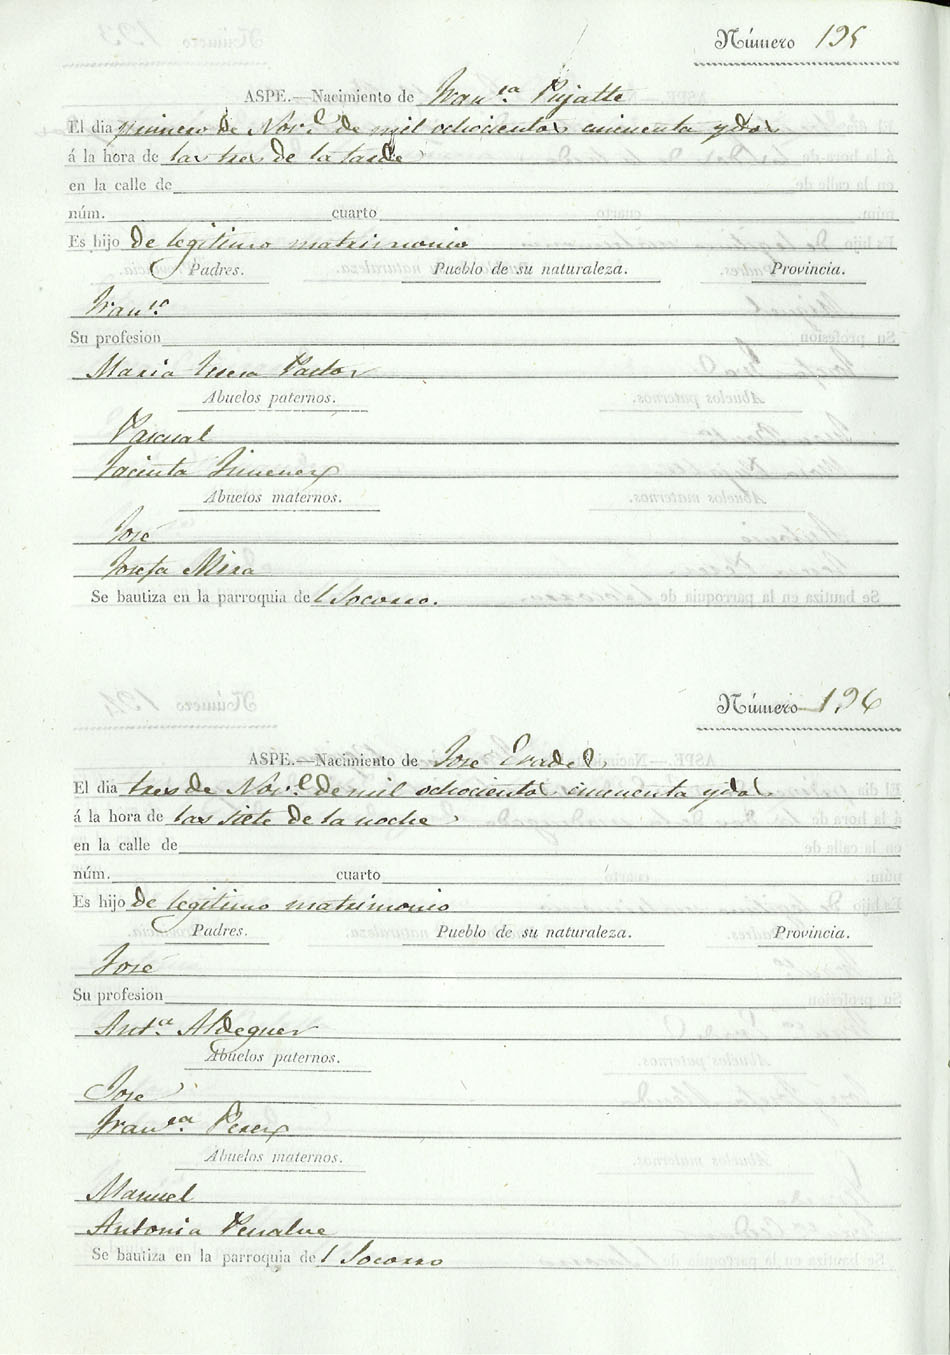 Número 195
ASPE.—Nacimiento de Fran.ca Pujalte
El dia primero de Nov.e de mil ochocientos cincuenta y dos
á la hora de las tres de la tarde
en la calle de
núm. cuarto
Es hijo de legitimo matrimonio
Padres. Pueblo de su naturaleza. Provincia.
Fran.co
Su profesion
Maria Teresa Pastor
Abuelos paternos.
Pascual
Jacinta Jimenez
Abuelos maternos.
José
Josefa Mira
Se bautiza en la parroquia del Socorro.
Número 196
ASPE.—Nacimiento de Jose Erades
El dia tres de Nov.e de mil ochocientos cincuenta y dos
á la hora de las siete de la noche
en la calle de
núm. cuarto
Es hijo de legitimo matrimonio
Padres. Pueblo de su naturaleza. Provincia.
José
Su profesion
Ant.a Aldeguer
Abuelos paternos.
Jose
Fran.ca Perez
Abuelos maternos.
Manuel
Antonia Penalve
Se bautiza en la parroquia del Socorro